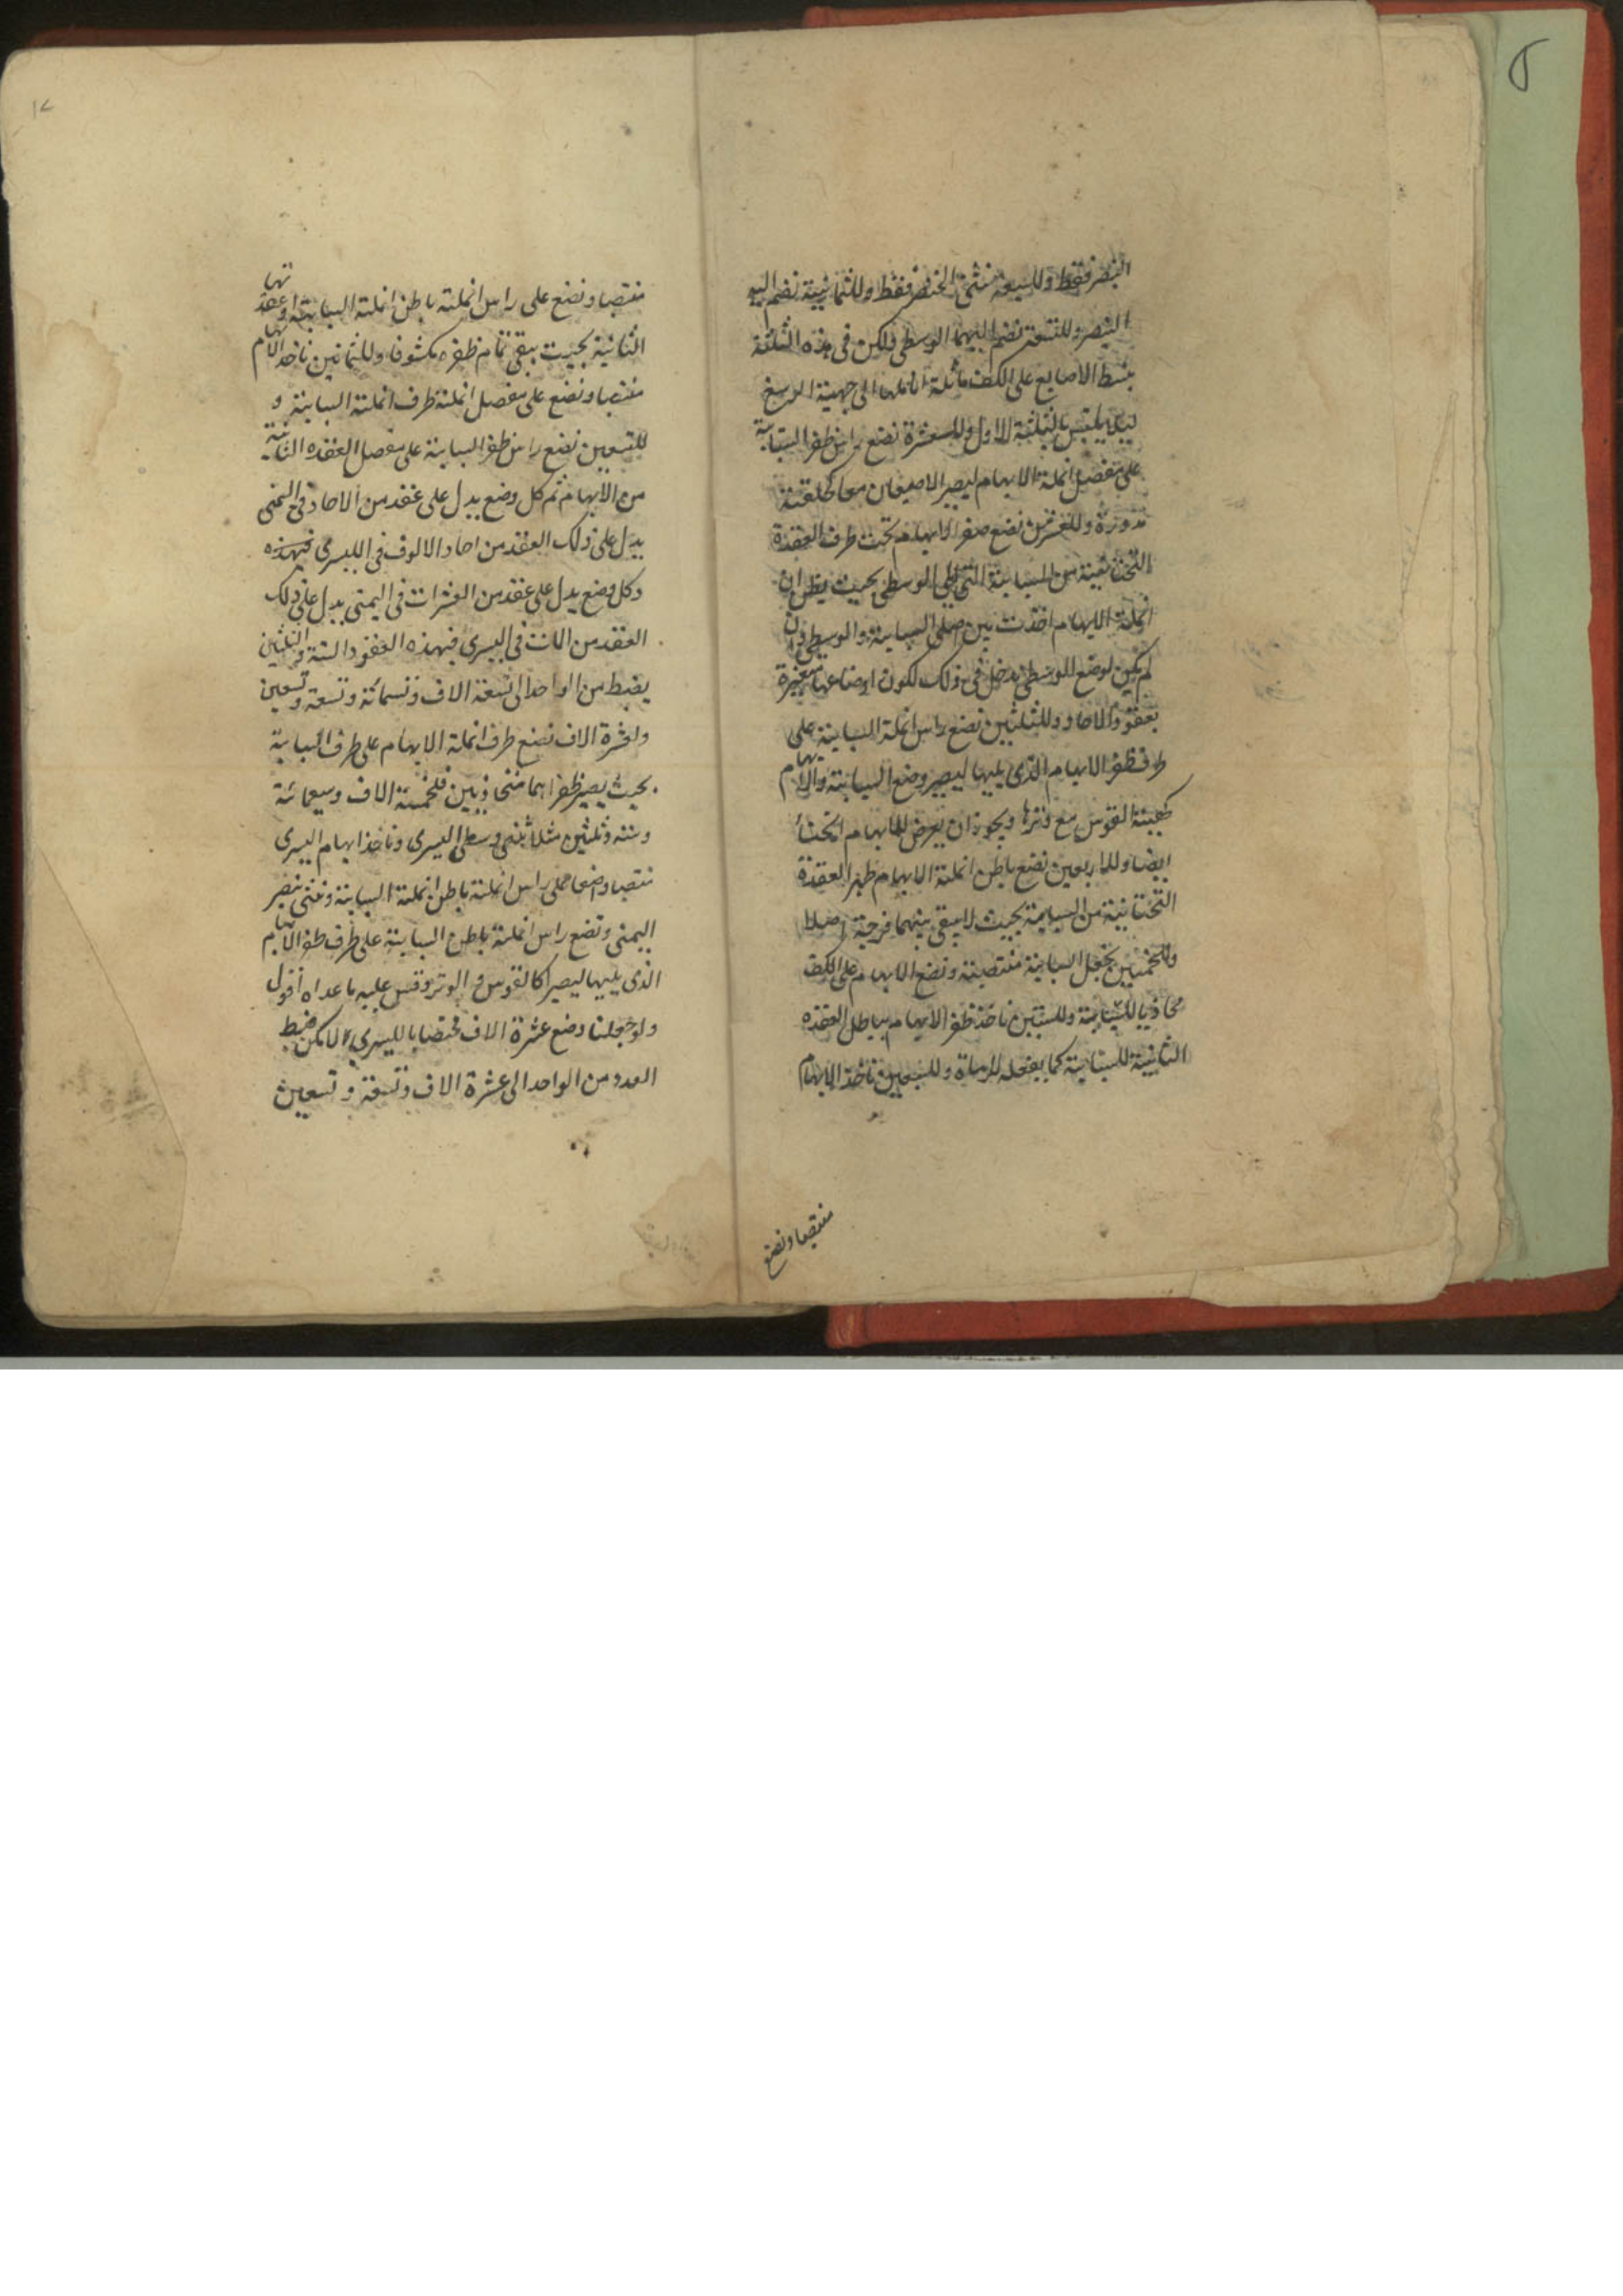 البنصر فقط وللسبعة نثنى الخنصر فقط وللثمانية نضم اليه
البنصر وللتسعة نضم اليهما الوسطى ولكن فى هذه الثلثة
بنبسط الاصابع على الكف مائلة اناملها الى جهة الرسغ
ليلا يلتبس بالثلثة الاول وللعشرة نضع راس ظفر السبابة
على مفصل انملة الابهام ليصير الاصبعان معا كحلقة
مدورة وللعشرين نضع ظفر الابهام تحت طرف العقدة
التحتانية من السبابة التى تلى الوسطى بحيث يظن ان
انملة الابهام اخذت بين اصلى السبابة والوسطى وان
لم يكن لوضع الوسطى مدخل فى ذلك لكون اوضاعها متغيرة
بعقود الاحاد وللثلثين نضع راس انملة السبابة على
طرف ظفر الابهام الذى يليها ليصير وضع السبابة والابهام
كهيئة القوس مع وترها ويجوز ان يعرض للابهام انحناء
ايضا وللاربعين نضع باطن انملة الابهام ظهر العقدة
التحتانية من السبابة بحيث لا يبقى بينهما فرجة اصلا
وللخمسين نجعل السبابة منتصبة ونضع الابهام على الكف
محاذيا للسبابة وللستين ناخذ ظفر الابهام بباطن العقده
الثانية للسبابة كما يفعله الرماة وللسبعين ناخذ الابهام
منتصبا ونضع
١٢
منتصبا ونضع على راس انملته باطن انملة السبابة او عقدتها
الثانية بحيث يبقى تمام ظفره مكشوفا وللثمانين ناخذ الابهام
منتصبا ونضع على مفصل انملته طرف انملة السبابة و
للتسعين نضع راس ظفر السبابة على مفصل العقده الثانية
من الابهام ثم كل وضع يدل على عقد من الاحاد فى اليمنى
يدل على ذلك العقد من احاد الالوف فى اليسرى فهذه
وكل وضع يدل على عقد من العشرات فى اليمنى يدل على ذلك
العقد من المات فى اليسرى فبهذه العقود الستة والثلثين
يضبط من الواحد الى تسعة الاف وتسمائة وتسعة وتسعين
ولعشرة الاف نضع طرف انملة الابهام على طرف السبابة
بحيث يصير ظفراهما متحاذيين فلخمسة الاف وسبعمائة
وستة وثلثين مثلا نثنى وسطى اليسرى وناخذ ابهام اليسرى
منتصبا واضعا على راس انملته باطن انملة السبابة ونثنى بنصر
اليمنى ونضع راس انملة باطن السبابة على طرف ظفر الابهام
الذى يليها ليصيرا كالقوس والوتر وقس عليه ما عداه اقول
ولو جعلنا وضع عشرة الاف مختصا باليسرى لامكن ضبط
العدد من الواحد الى عشرة الاف وتسعة وتسعين